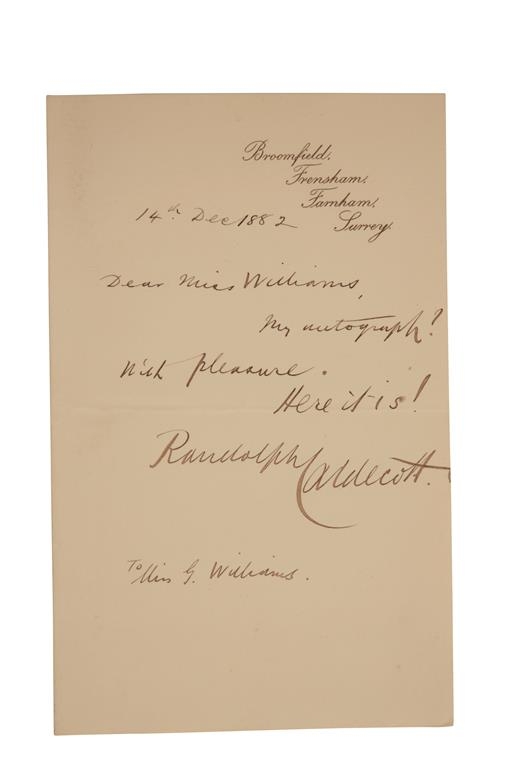 Broomfield,
Frensham,
Farnham,
Surrey.
14th Dec 1882
Dear Miss Williams,
My autograph?
With pleasure.
Here it is!
Randolph Caldecott.
To Miss G. Williams.